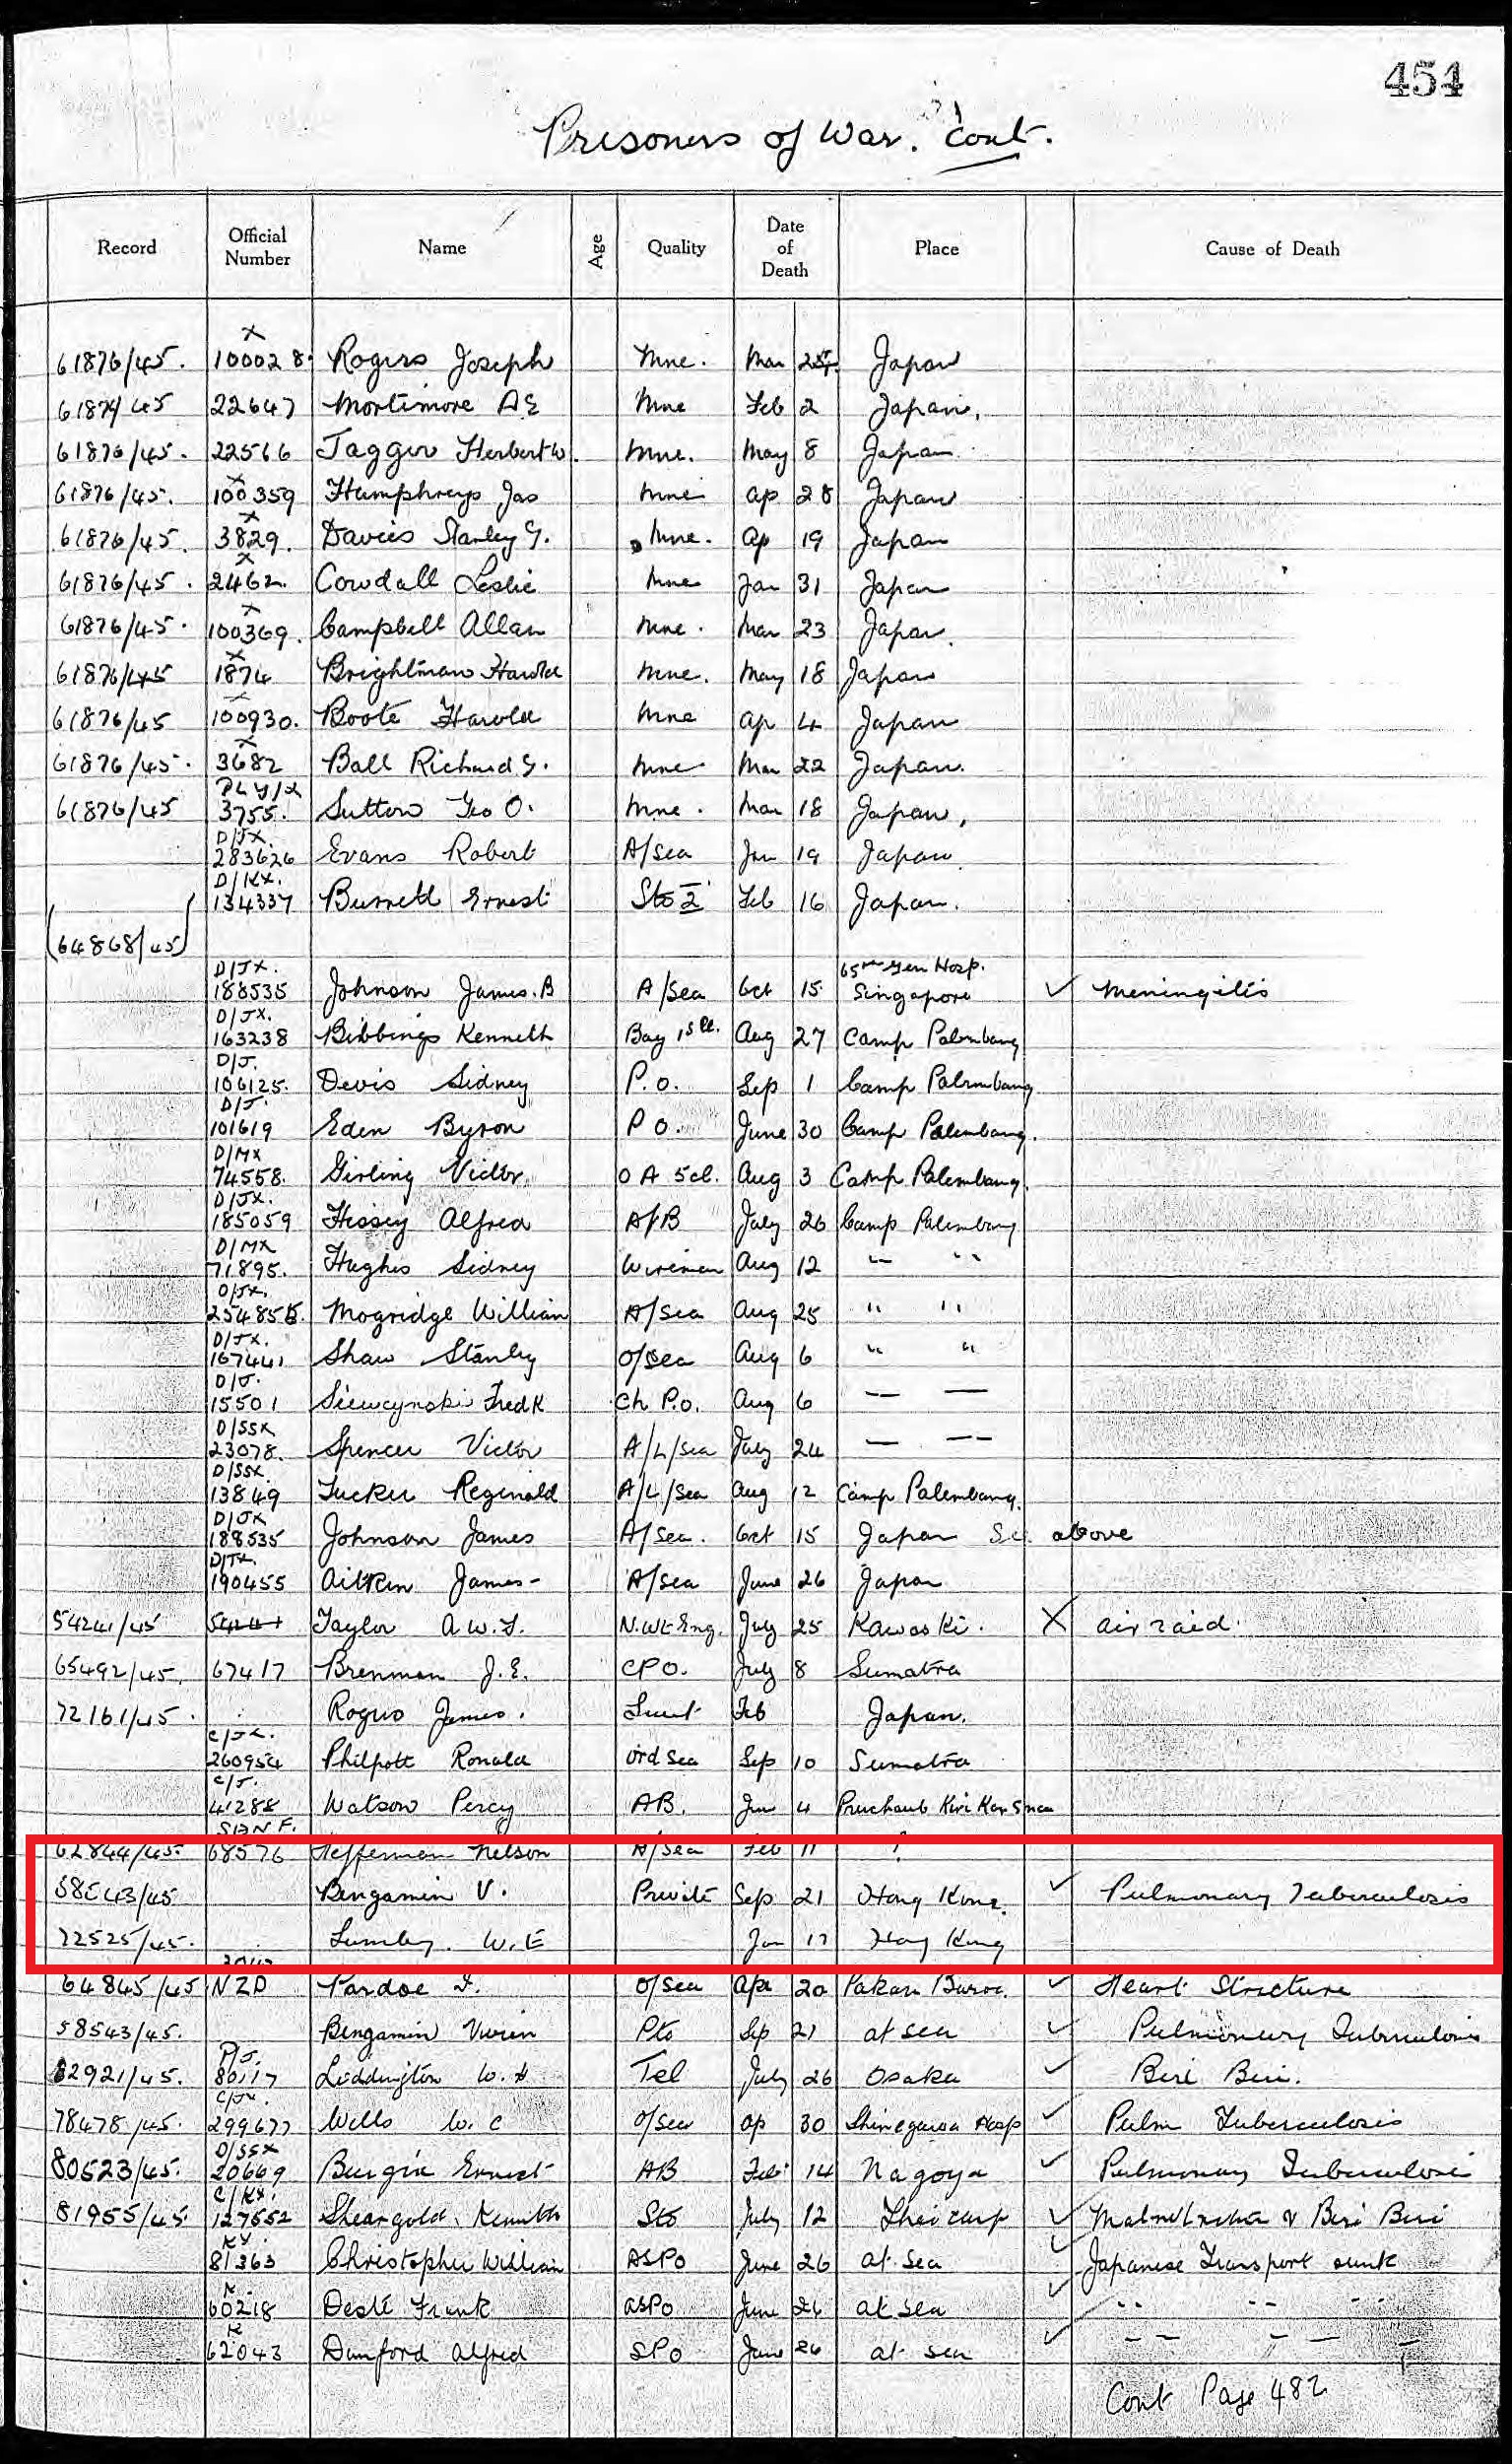 454
Prisoners of War. Cont.
Record Official Number Name Age Quality Date of Death Place Cause of Death
X
61876/45. 100028. Rogers Joseph Mne. Mar Japan
61874/45 22647 Mortimore A E Mne Feb 2 Japan.
61876/45. 22566 Jagger Herbert W. Mne. May 8 Japan
X
61876/45. 100359 Humphreys Jas Mne Ap 28 Japan
X
61876/45. 3829. Davies Stanley G. Mne. Ap 19 Japan
X
61876/45. 2462. Cowdall Leslie Mne Jan 31 Japan
X
61876/45. 100369. Campbell Allan Mne. Mar 23 Japan.
X
61876/45 1874 Brightman Harold Mne. May 18 Japan
X
61876/45 100930. Boote Harold Mne Ap 4 Japan
X
61876/45. 3682 Ball Richard G. Mne Mar 22 Japan.
PLY/X
61876/45 3755. Sutton Geo O. Mne. Mar 18 Japan,
D/JX.
283626 Evans Robert A/Sea Jan 19 Japan
D/KX.
134337 Burnett Ernest Sto 2 Feb 16 Japan.
(64868/45)
D/JX. 65th Gen Hosp.
188535 Johnson James. B A/Sea Oct 15 Singapore ✓ Meningitis
D/JX.
163238 Bibbings Kenneth Boy 1st Cl. Aug 27 Camp Palembang
D/J.
106125. Devis Sidney P.O. Sep 1 Camp Palembang
D/J.
101619 Eden Byron P O. June 30 Camp Palembang.
D/MX
74558. Girling Victor O A 5 cl. Aug 3 Camp Palembang.
D/JX.
185059 Hissey Alfred A/B July 26 Camp Palembang
D/MX
71895. Hughes Sidney Wireman Aug 12 " "
D/JX.
Mogridge William A/Sea Aug 25 " "
D/JX.
167441 Shaw Stanley O/Sea Aug 6 " "
D/J.
15501 Siewcynski Fred K Ch P.O. Aug 6 — —
D/SSX
23078. Spencer Victor A/L/Sea July 24 — —
D/SSX.
13849 Tucker Reginald A/L/Sea Aug 12 Camp Palembang.
D/JX
188535 Johnson James A/Sea. Oct 15 Japan See above
D/JX.
190455 Aitken James- A/Sea June 26 Japan
54241/45 54241 Taylor A.W.F. N.Wt Eng. July 25 Kawaski. X air raid.
65492/45. 67417 Brennan J.E. CPO. July 8 Sumatra
72161/45. James. Lieut Feb Japan.
C/JX.
260954 Philpott Ronald Ord Sea Sep 10 Sumatra
C/J.
41288 Watson Percy AB. Jun 4
SANF.
62844/45. 68576 Heffernan Nelson A/Sea Feb 11 ?
58543/45 Bengamin V. Private Sep 21 Hong Kong. ✓ Pulmonary Tuberculosis
72525/45. Lumley. W.E Jan 17 Hong Kong
64845/45 NZD Pardoe O/Sea Apr 20 Pakan Baroe. ✓ Heart Stricture
58543/45. Bengamin Vivien Pte Sep 21 at sea ✓ Pulmonary Tuberculosis
P/J.
82921/45. 80117 Luddington W. H Tel July 26 Osaka ✓ Beri Beri.
C/JX.
78478/45. 299677 Wells W. C O/Sea Ap 30 Shinegawa Hosp ✓ Pulm Tuberculosis
D/SSX
80523/45. 20669 Burgin Ernest AB Feb 14 Nagoya ✓ Pulmonary Tuberculosis
C/KX.
81955/45. 127552 Sheargold. Kenneth Sto July 12 ✓ Malnutrition & Beri Beri
KX.
81363 Christopher William ASPO June 26 at sea ✓ Japanese Transport sunk
K.
60218 Deste Frank ASPO June 26 at sea ✓ " " "
K
62043 Danford Alfred SPO June 26 at sea ✓ — — —
Cont Page 482